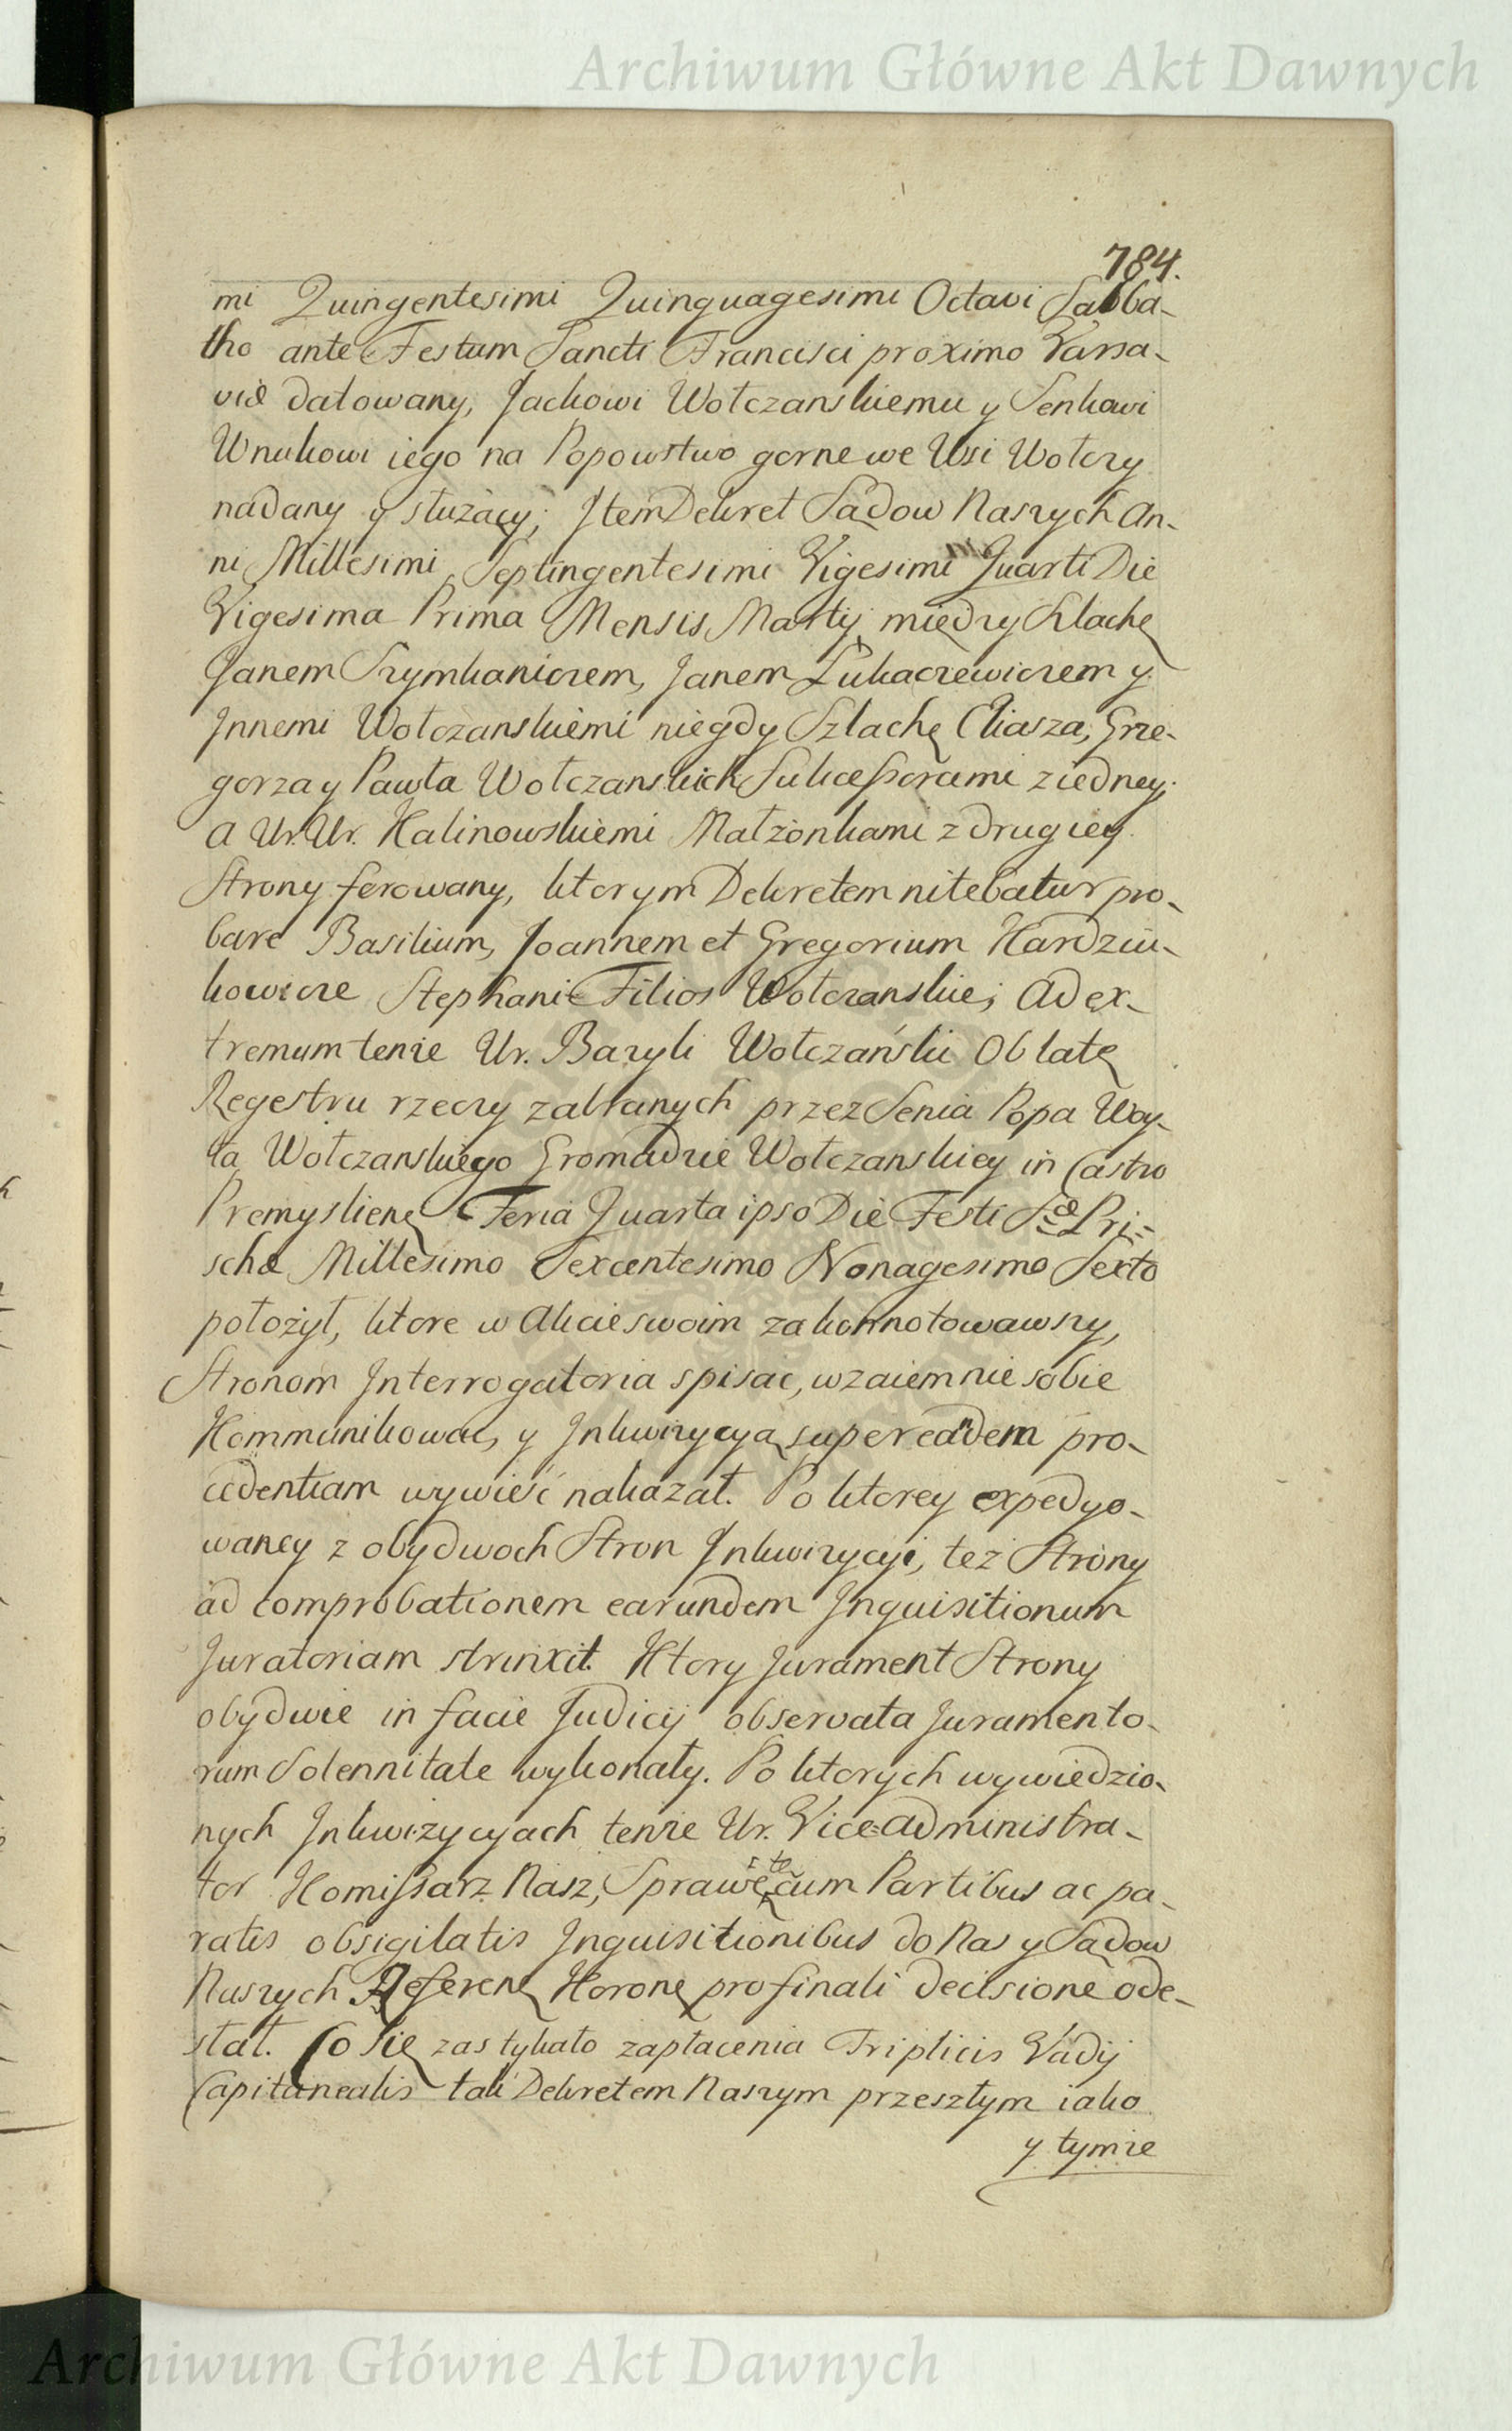 Archiwum Główne Akt Dawnych
784.
mi Quingentesimi Quinquagesimi Octavi Sabba-
tho ante Festum Sancti Francisci proximo Varsa-
viæ datowany, Jackowi Wołczanskiemu y Senkowi
Wnukowi iego na Popowstwo gorne we Wsi Wołczy
nadany y służący; Item Dekret Sądow Naszych An-
ni Millesimi Septingentesimi Vigesimi Quarti Die
Vigesima Prima Mensis Martij między Szlachę
Janem Szymkaniczem, Janem Łukaczewiczem y
Innemi Wołczanskiemi niegdy Szlachę Eliasza, Grze-
gorza y Pawła Wołczanskich Sukceßorami z iedney
a Ur. Ur. Kalinowskiemi Małżonkami z drugiey
Strony ferowany, ktorym Dekretem nitebatur pro-
bare Basilium, Joannem et Gregorium Hardziu-
kowicze Stephani Filios Wołczanskie; Ad ex-
tremum tenże Ur. Bazyli Wołczański Oblatę
Regestru rzeczy zabranych przez Senia Popa Woy-
ta Wołczanskiego Gromadzie Wołczanskiey in Castro
Premyslien Feria Quarta ipso Die Festi S<sup>æ</sup> Pri-
schæ Millesimo Sexcentesimo Nonagesimo Sexto
położył, ktore w Akcie swoim zakonnotowawszy,
Stronom Interrogatoria spisac, wzaiemnie sobie
Kommunikowac, y Inkwizycyą super eandem pro-
cedentiam wywieść nakazał. Po ktorey expedyo-
waney z obydwoch Stron Inkwizycyi, też Strony
ad comprobationem earundem Inquisitionum
Juratoriam strinxit. Ktory Jurament Strony
obydwie in facie Judicij observata Juramento-
rum Solennitate wykonały. Po ktorych wywiedzio-
nych Inkwizycyach tenże Ur. Vice-Administra-
tor Komißarz Nasz, Sprawę tę cum Partibus ac pa-
ratis obsigilatis Inquisitionibus do Nas y Sądow
Naszych Referen Koron pro finali decisione ode-
słał. Co się zas tykało zapłacenia Triplicis Vadij
Capitanealis tak Dekretem Naszym przeszłym iako
y tymże
Archiwum Główne Akt Dawnych